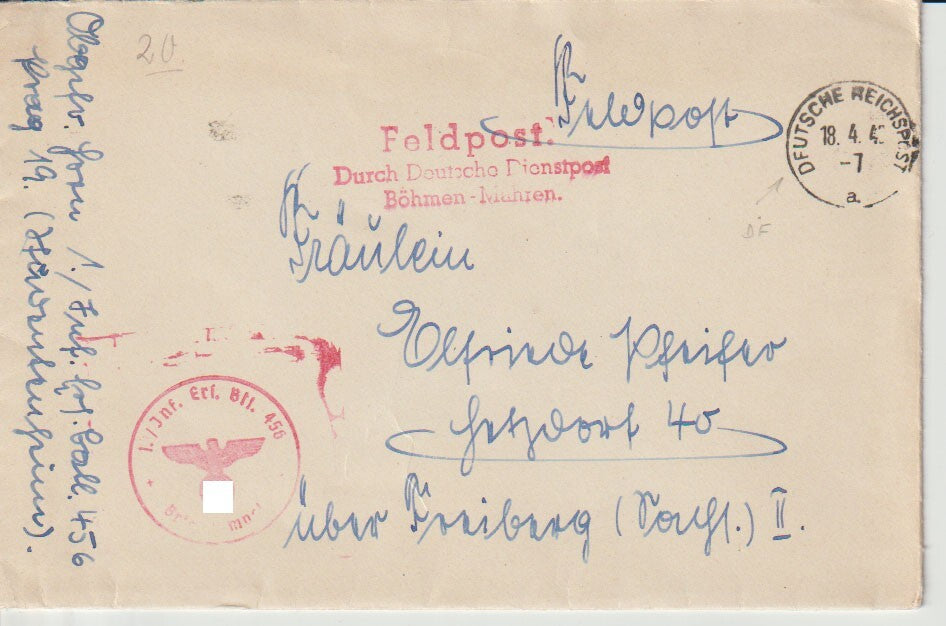 Feldpost
Feldpost.
Durch Deutsche Dienstpost
Böhmen-Mähren.
DEUTSCHE REICHSPOST
18. 4. 4
-7
a.
20
DF
Fräulein
Elfriede Pfeifer
Hetzdorf 40
über Freiberg (Sachs.) II.
1./Inf. Ers. Btl. 456
Obgefr. Horn 1./Inf. Ers. Batl. 456
Prag 19.